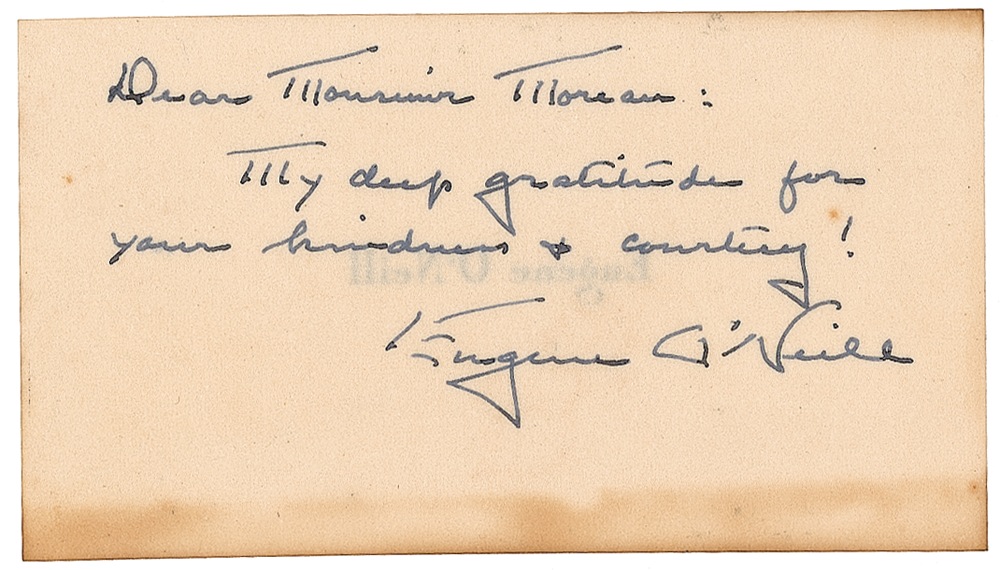 Dear Monsieur Moreau:
My deep gratitude for
your kindness & courtesy!
Eugene O'Neill
Eugene O'Neill